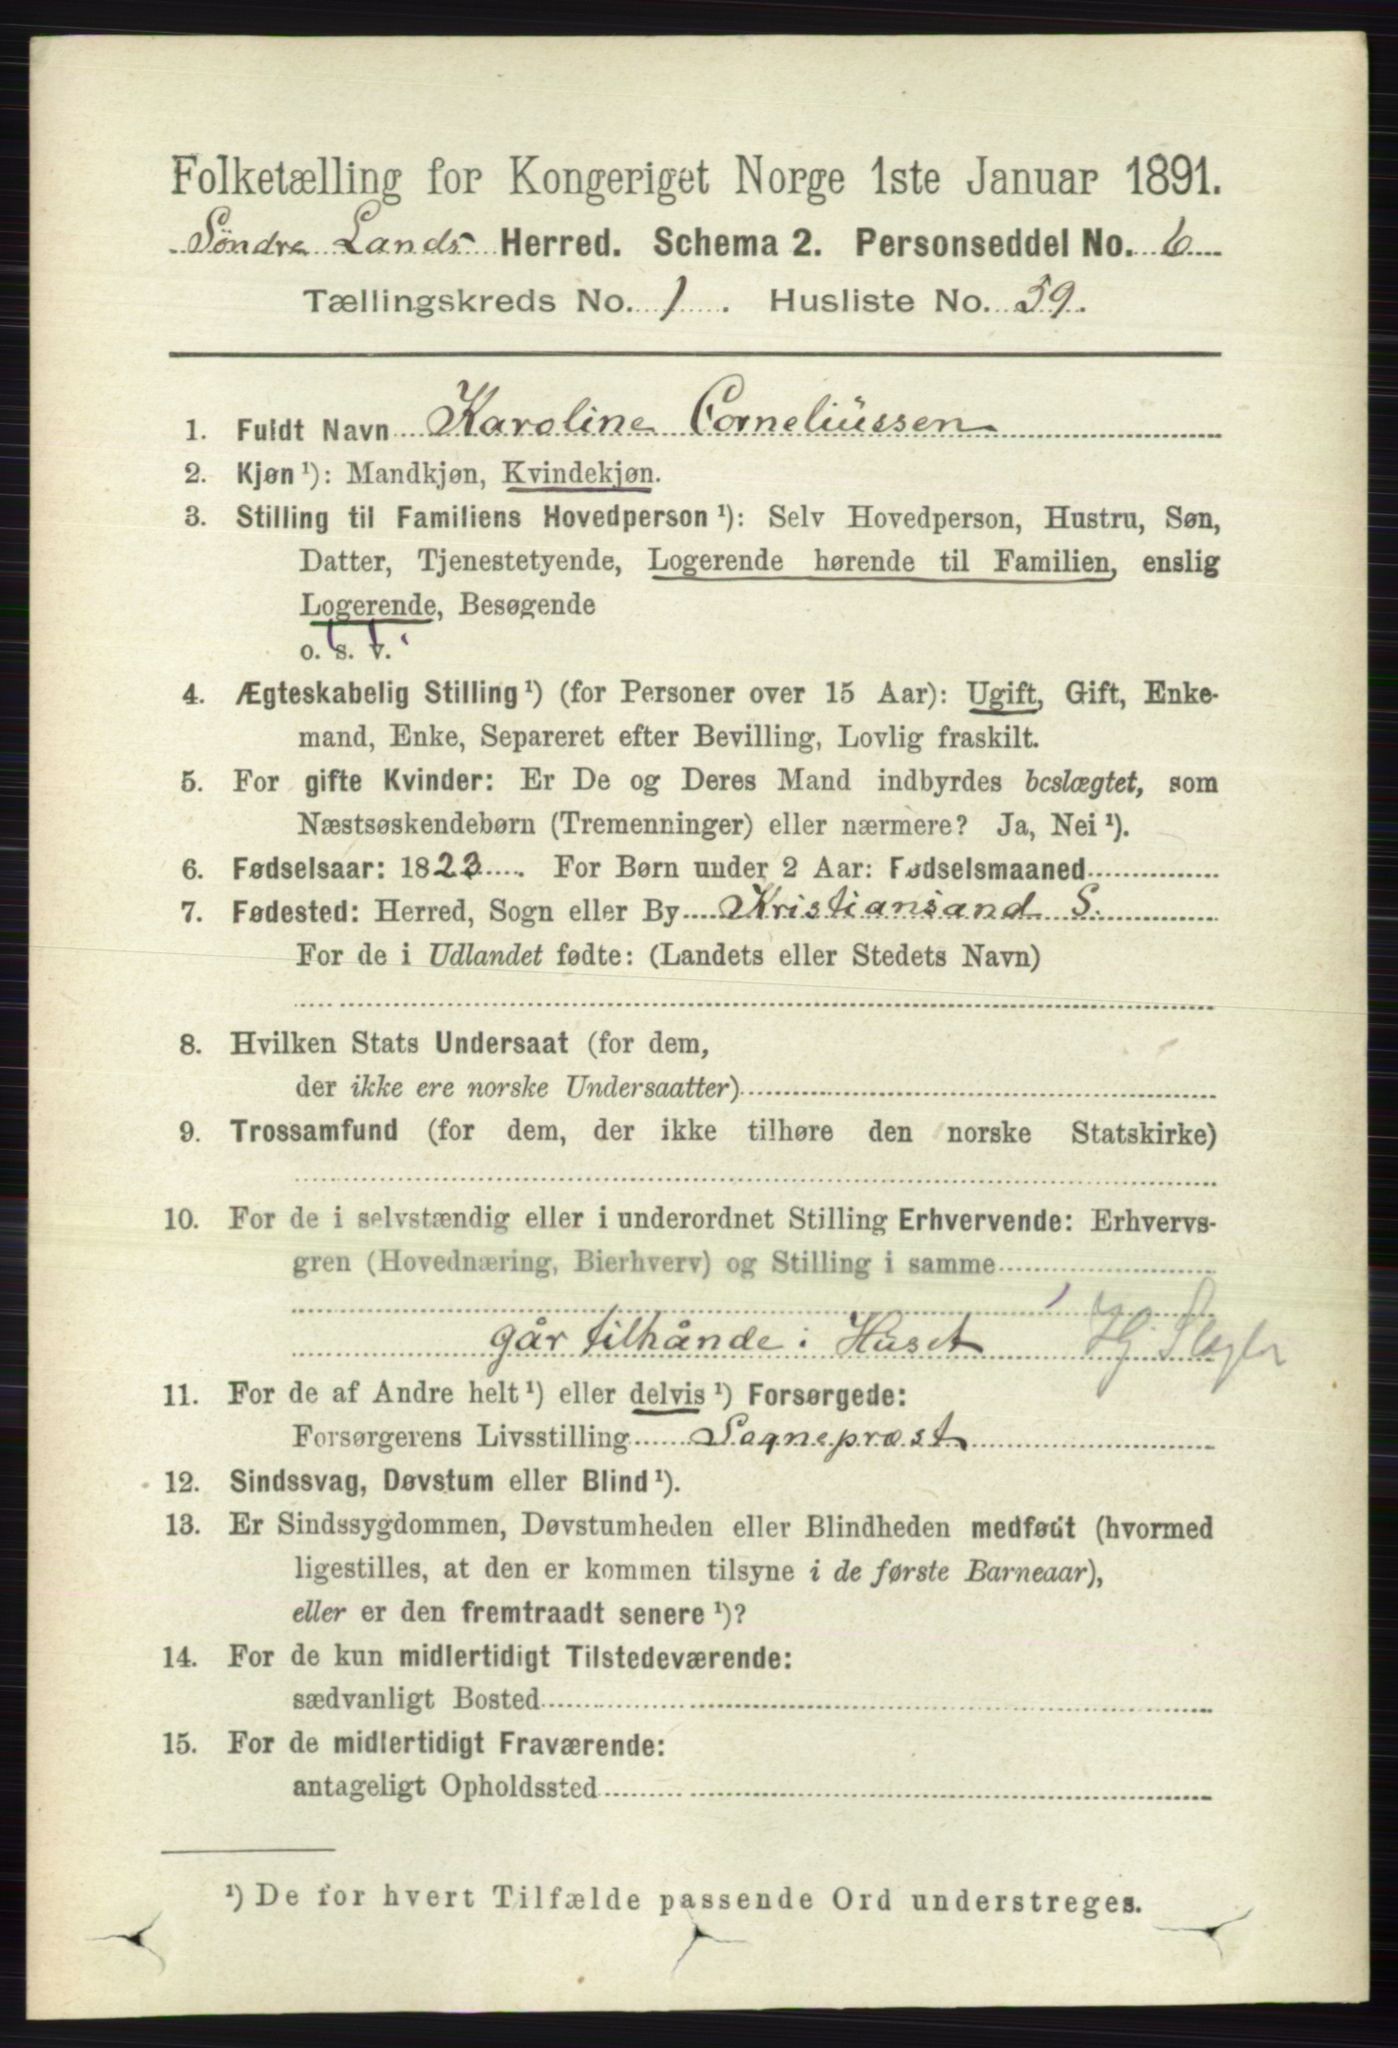 Folketælling for Kongeriget Norge 1ste Januar 1891.
Söndre Lands Herred. Schema 2. Personseddel No. 6
Tællingskreds No. 1. Husliste No. 59.
1. Fuldt Navn Karoline Corneliüssen
2. Kjøn ¹): Mandkjøn, Kvindekjøn.
3. Stilling til Familiens Hovedperson ¹): Selv Hovedperson, Hustru, Søn,
Datter, Tjenestetyende, Logerende hørende til Familien, enslig
Logerende, Besøgende
o. s. v.
4. Ægteskabelig Stilling ¹) (for Personer over 15 Aar): Ugift, Gift, Enke-
mand, Enke, Separeret efter Bevilling, Lovlig fraskilt.
5. For gifte Kvinder: Er De og Deres Mand indbyrdes beslægtet, som
Næstsøskendebørn (Tremenninger) eller nærmere? Ja, Nei ¹).
6. Fødselsaar: 1823. For Børn under 2 Aar: Fødselsmaaned
7. Fødested: Herred, Sogn eller By Kristiansand S.
For de i Udlandet fødte: (Landets eller Stedets Navn)
8. Hvilken Stats Undersaat (for dem,
der ikke ere norske Undersaatter)
9. Trossamfund (for dem, der ikke tilhøre den norske Statskirke)
10. For de i selvstændig eller i underordnet Stilling Erhvervende: Erhvervs-
gren (Hovednæring, Bierhverv) og Stilling i samme
går tilhånde i Huset
11. For de af Andre helt ¹) eller delvis ¹) Forsørgede:
Forsørgerens Livsstilling Sognepræst
12. Sindssvag, Døvstum eller Blind ¹).
13. Er Sindssygdommen, Døvstumheden eller Blindheden medfødt (hvormed
ligestilles, at den er kommen tilsyne i de første Barneaar),
eller er den fremtraadt senere ¹)?
14. For de kun midlertidigt Tilstedeværende:
sædvanligt Bosted
15. For de midlertidigt Fraværende:
antageligt Opholdssted
¹) De for hvert Tilfælde passende Ord understreges.